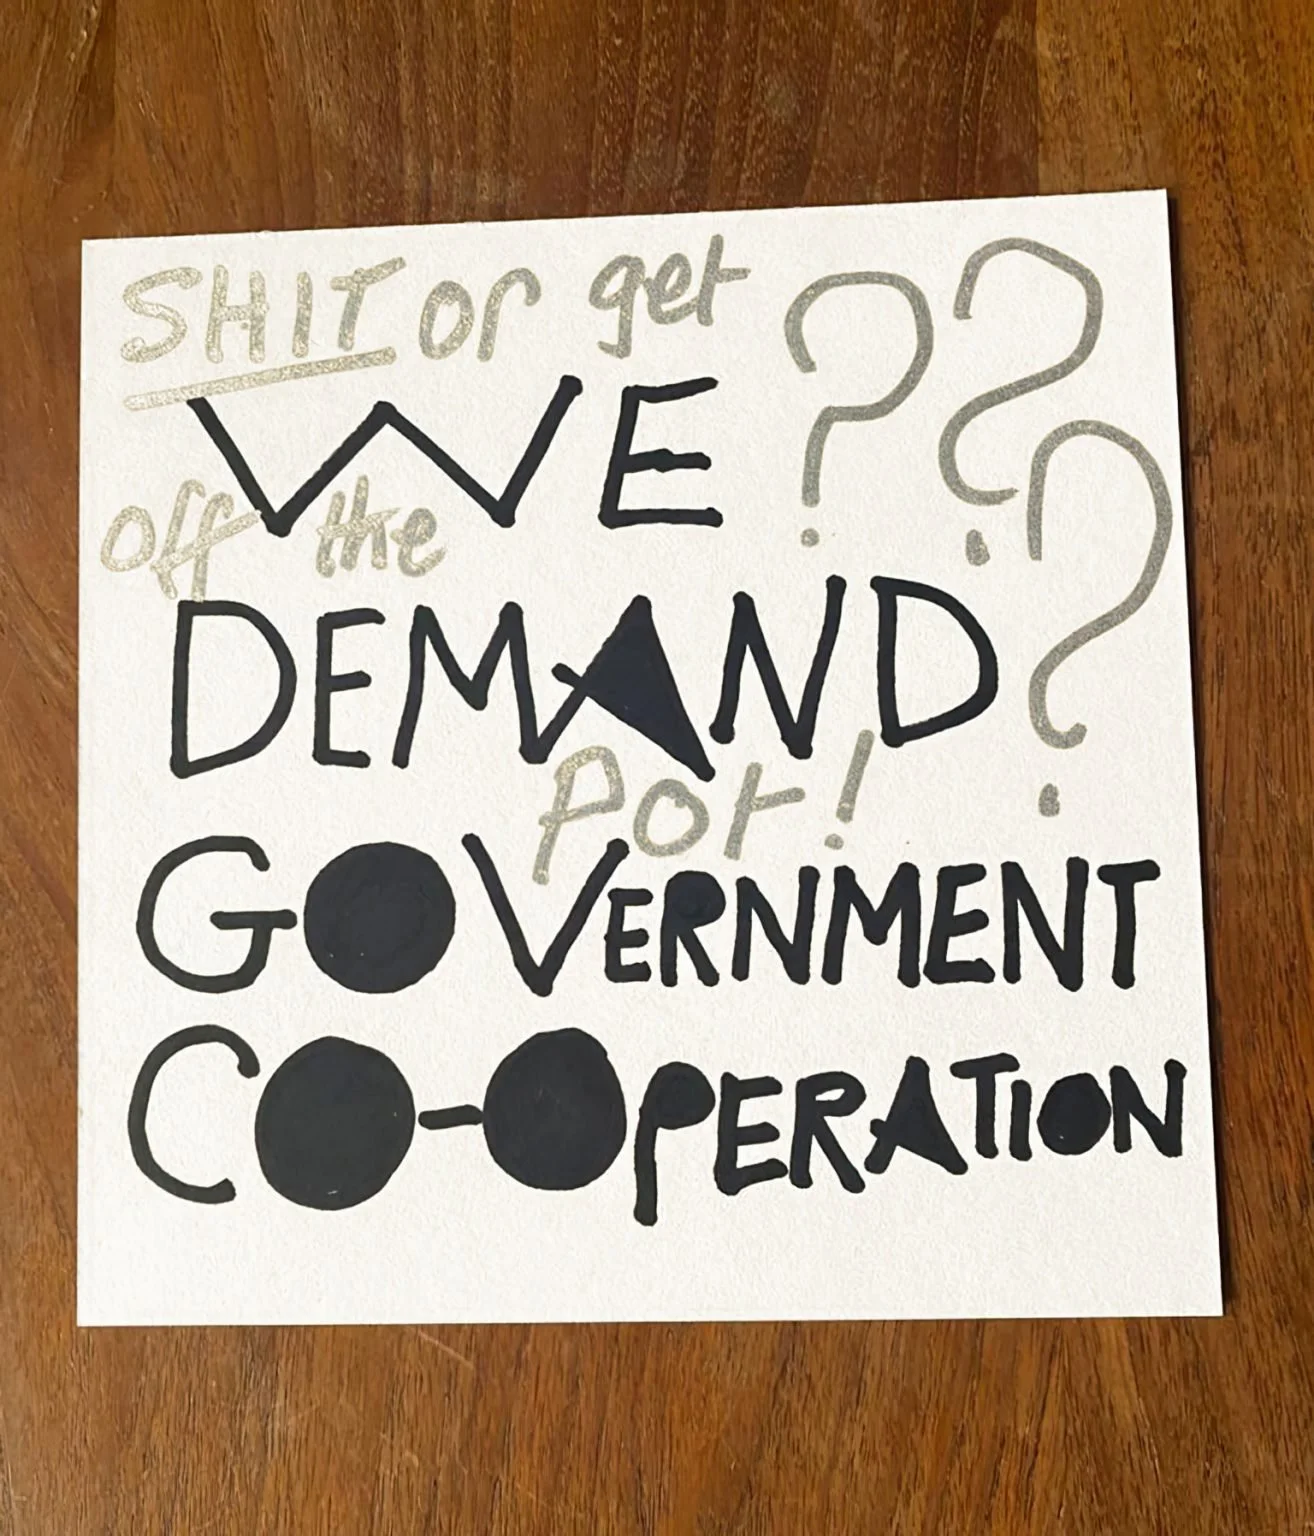 SHIT or get ???
WE
off the
DEMAND
Pot!
GOVERNMENT
CO-OPERATION